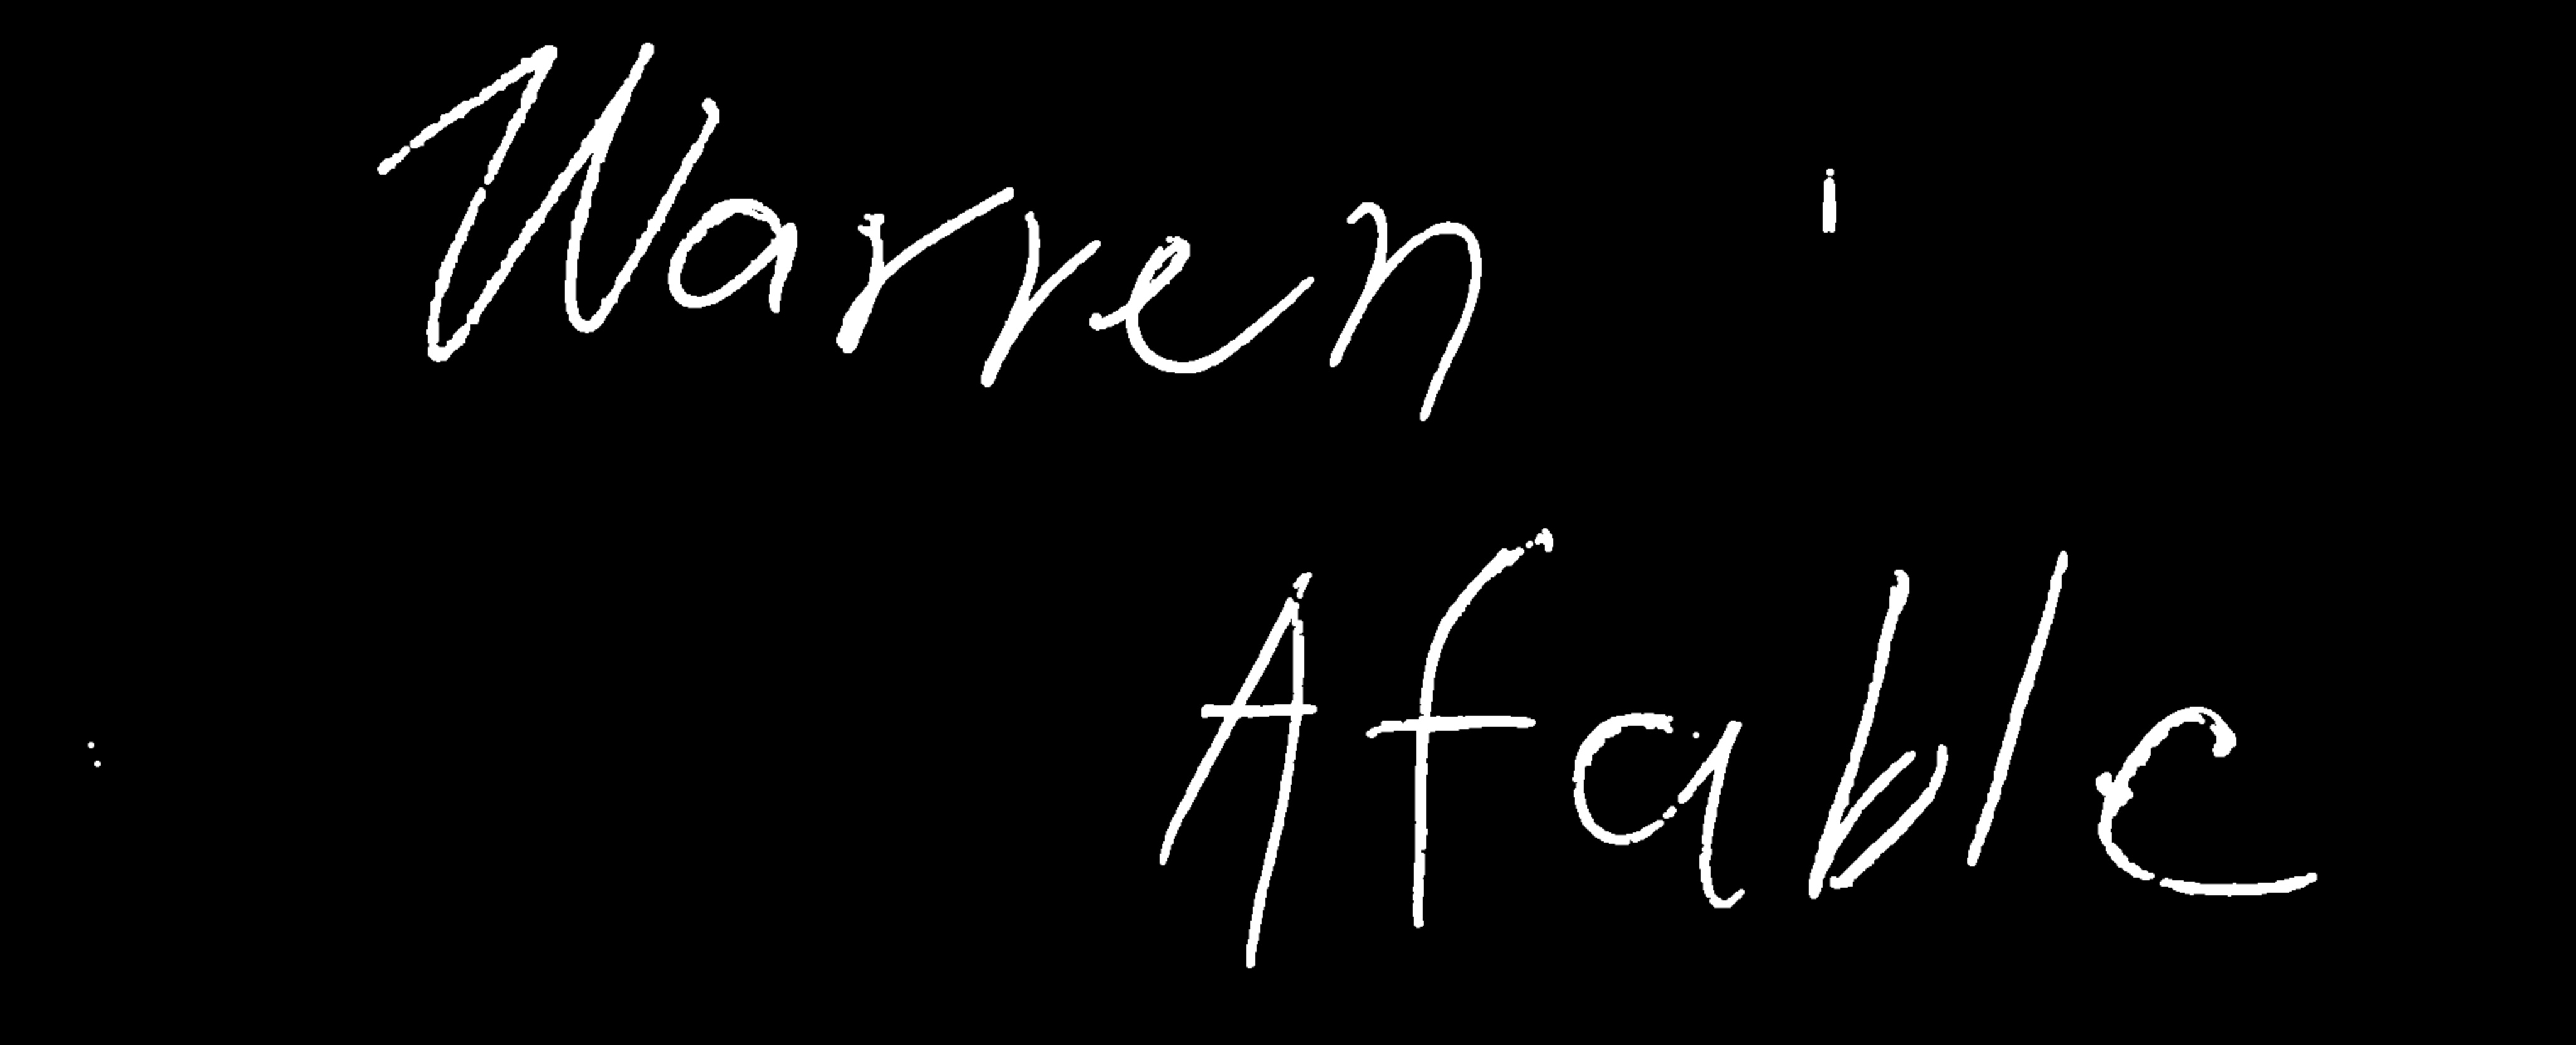 Warren
Afable